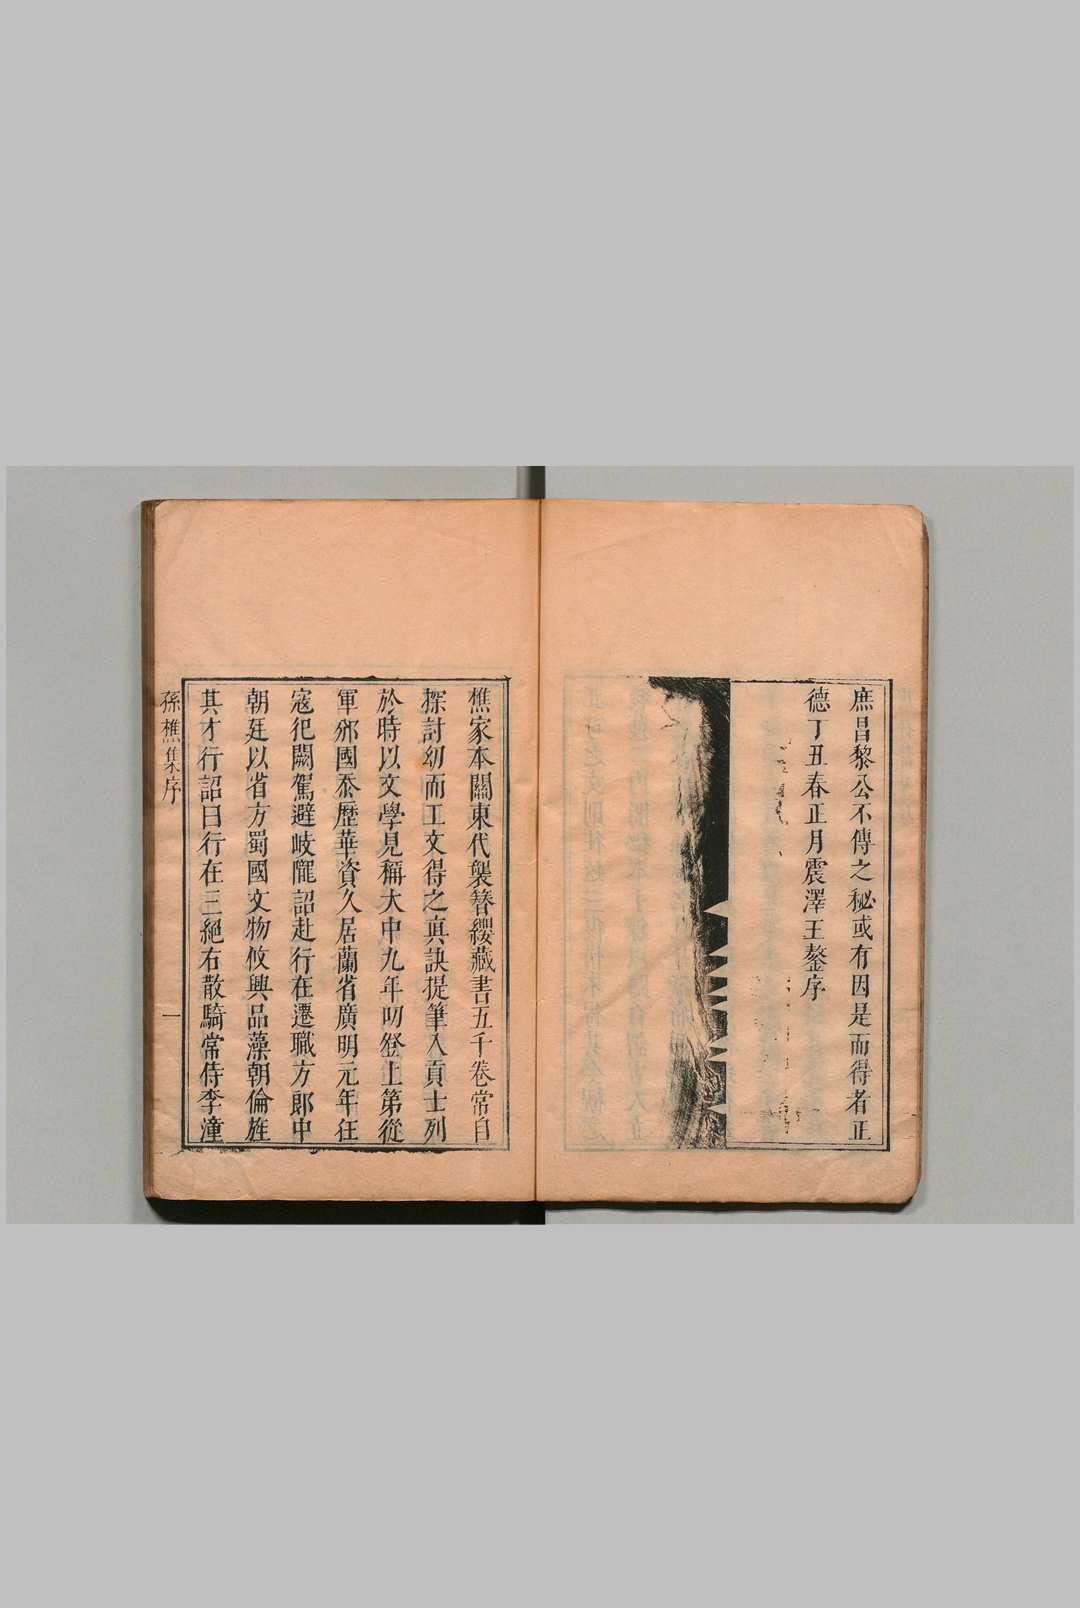 庶昌黎公不傳之秘或有因是而得者正
德丁丑春正月震澤王鏊序
樵家本關東代襲簪纓藏書五千卷常自
探討幼而工文得之真訣提筆入貢士列
於時以文學見稱大中九年叨登上第從
軍邠國忝歷華資久居蘭省廣明元年狂
寇犯闕駕避岐隴詔赴行在遷職方郎中
朝廷以省方蜀國文物攸興品藻朝倫旌
其才行詔曰行在三絕右散騎常侍李潼
孫樵集序
一